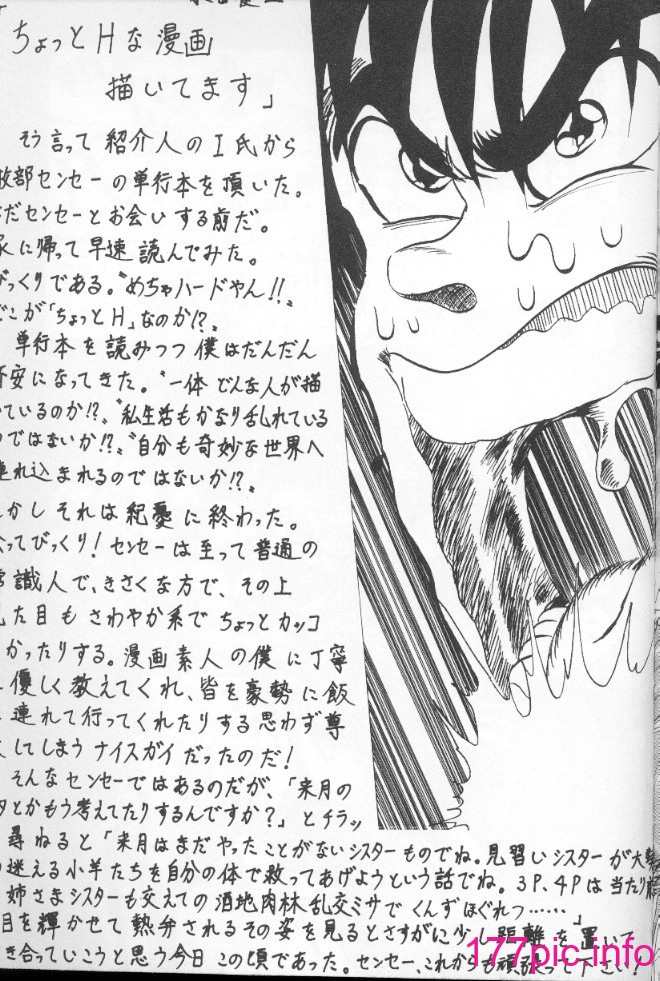 ちょっとHな漫画
描いてます」
そう言って紹介人のI氏から
センセーの単行本を頂いた。
だセンセーとお会いする前だ。
に帰って早速読んでみた。
びっくりである。〝めちゃハードやん!!〟
どこが「ちょっとH」なのか!?
単行本を読みつつ僕はだんだん
安になってきた。〝一体どんな人が描
ているのか!?〟〝私生活もかなり乱れている
ではないか!?〟〝自分も奇妙な世界へ
れ込まれるのではないか!?〟
かしそれは紀憂に終わった。
ってびっくり!センセーは至って普通の
識人で、きさくな方で、その上
た目もさわやか系でちょっとカッコ
かったりする。漫画素人の僕に丁寧
優しく教えてくれ、皆を豪勢に飯
連れて行ってくれたりする思わず尊
してしまうナイスガイだったのだ!
そんなセンセーではあるのだが、「来月の
とかもう考えてたりするんですか?」とチラッ
尋ねると「来月はまだやったことがないシスターものでね。見習いシスターが大勢
迷える小羊たちを自分の体で救ってあげようという話でね。3P、4Pは当たり前
姉さまシスターも交えての酒地肉林乱交ミサでくんずほぐれつ……」
目を輝かせて熱弁されるその姿を見るとさすがに少し距離を置いて
き合っていこうと思う今日この頃であった。センセー、これからも頑張って下さい!
177pic.info